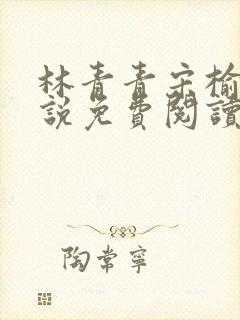 林青青宋榆
說免費閱讀
陶常寧